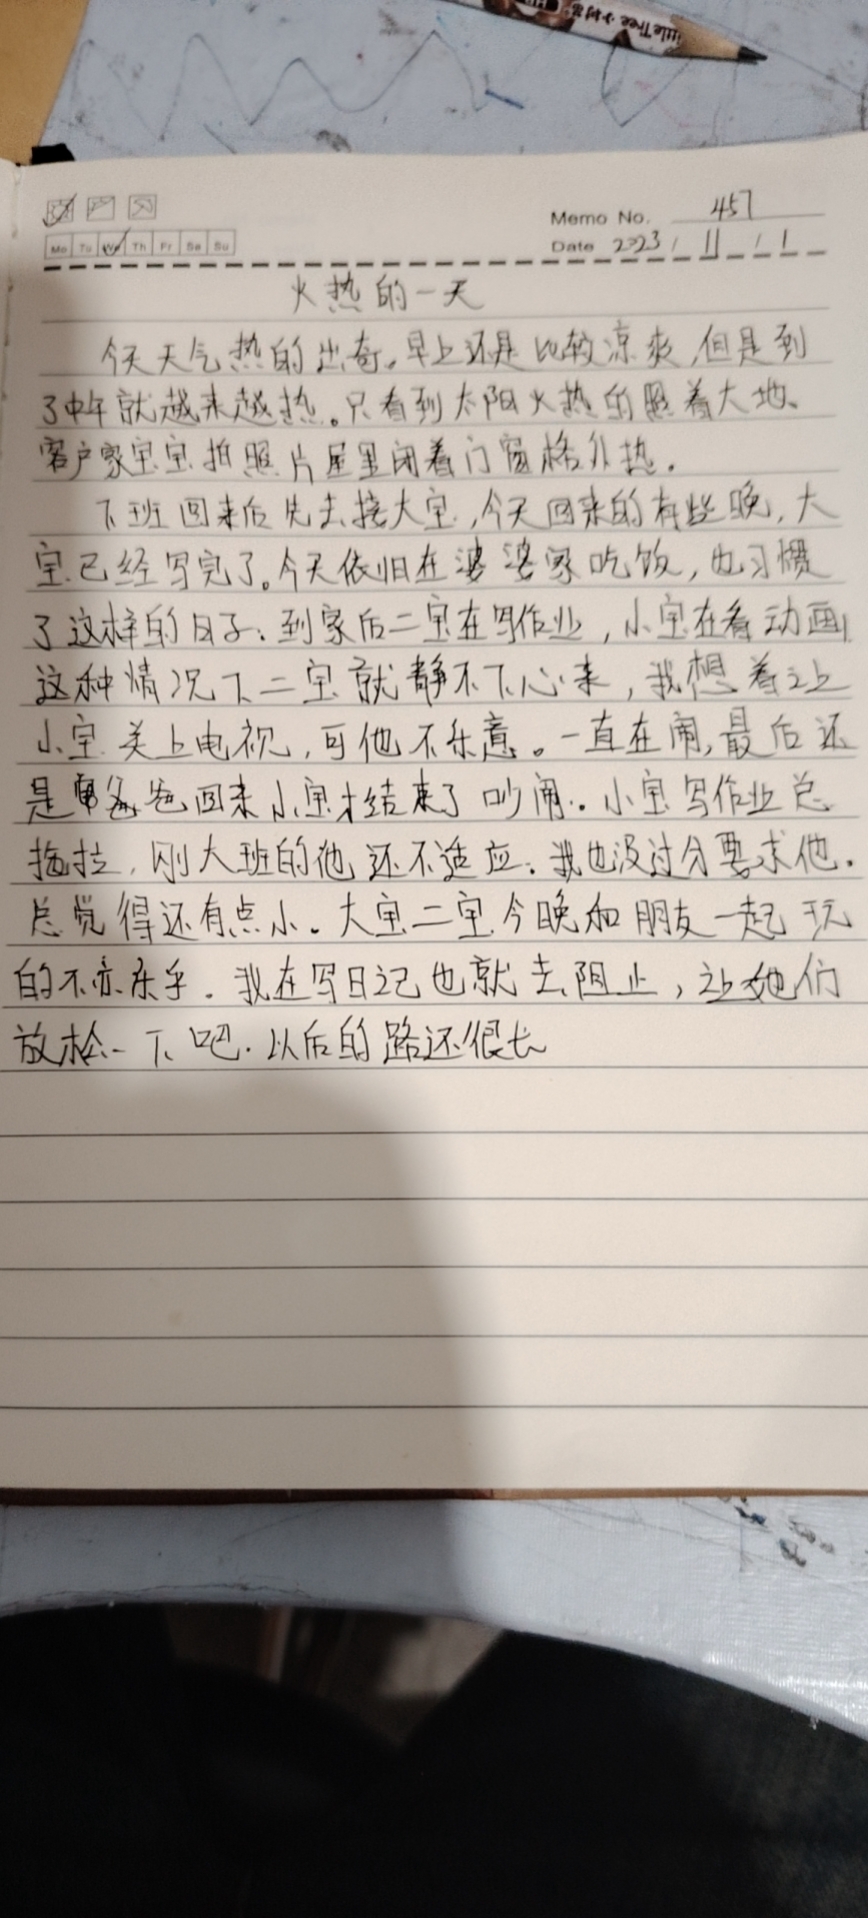 Little Tree 小树苗
Memo No. 457
Mo Tu We Th Fr Sa Su
Date 2023 / 11 / 1
火热的一天
今天天气热的出奇。早上还是比较凉爽,但是到
了中午就越来越热。只看到太阳火热的照着大地、
客户家宝宝拍照片屋里闭着门窗格外热.
下班回来后先去接大宝,今天回来的有些晚,大
宝已经写完了。今天依旧在婆婆家吃饭,也习惯
了这样的日子.到家后二宝在写作业,小宝在看动画
这种情况下二宝就静不下心来,我想着让
小宝关上电视,可他不乐意。一直在闹,最后还
是爸爸回来小宝才结束了吵闹..小宝写作业总
拖拉,刚大班的他还不适应.我也没过分要求他.
总觉得还有点小。大宝二宝今晚和朋友一起玩
的不亦乐乎.我在写日记也就去阻止,让她们
放松一下吧.以后的路还很长